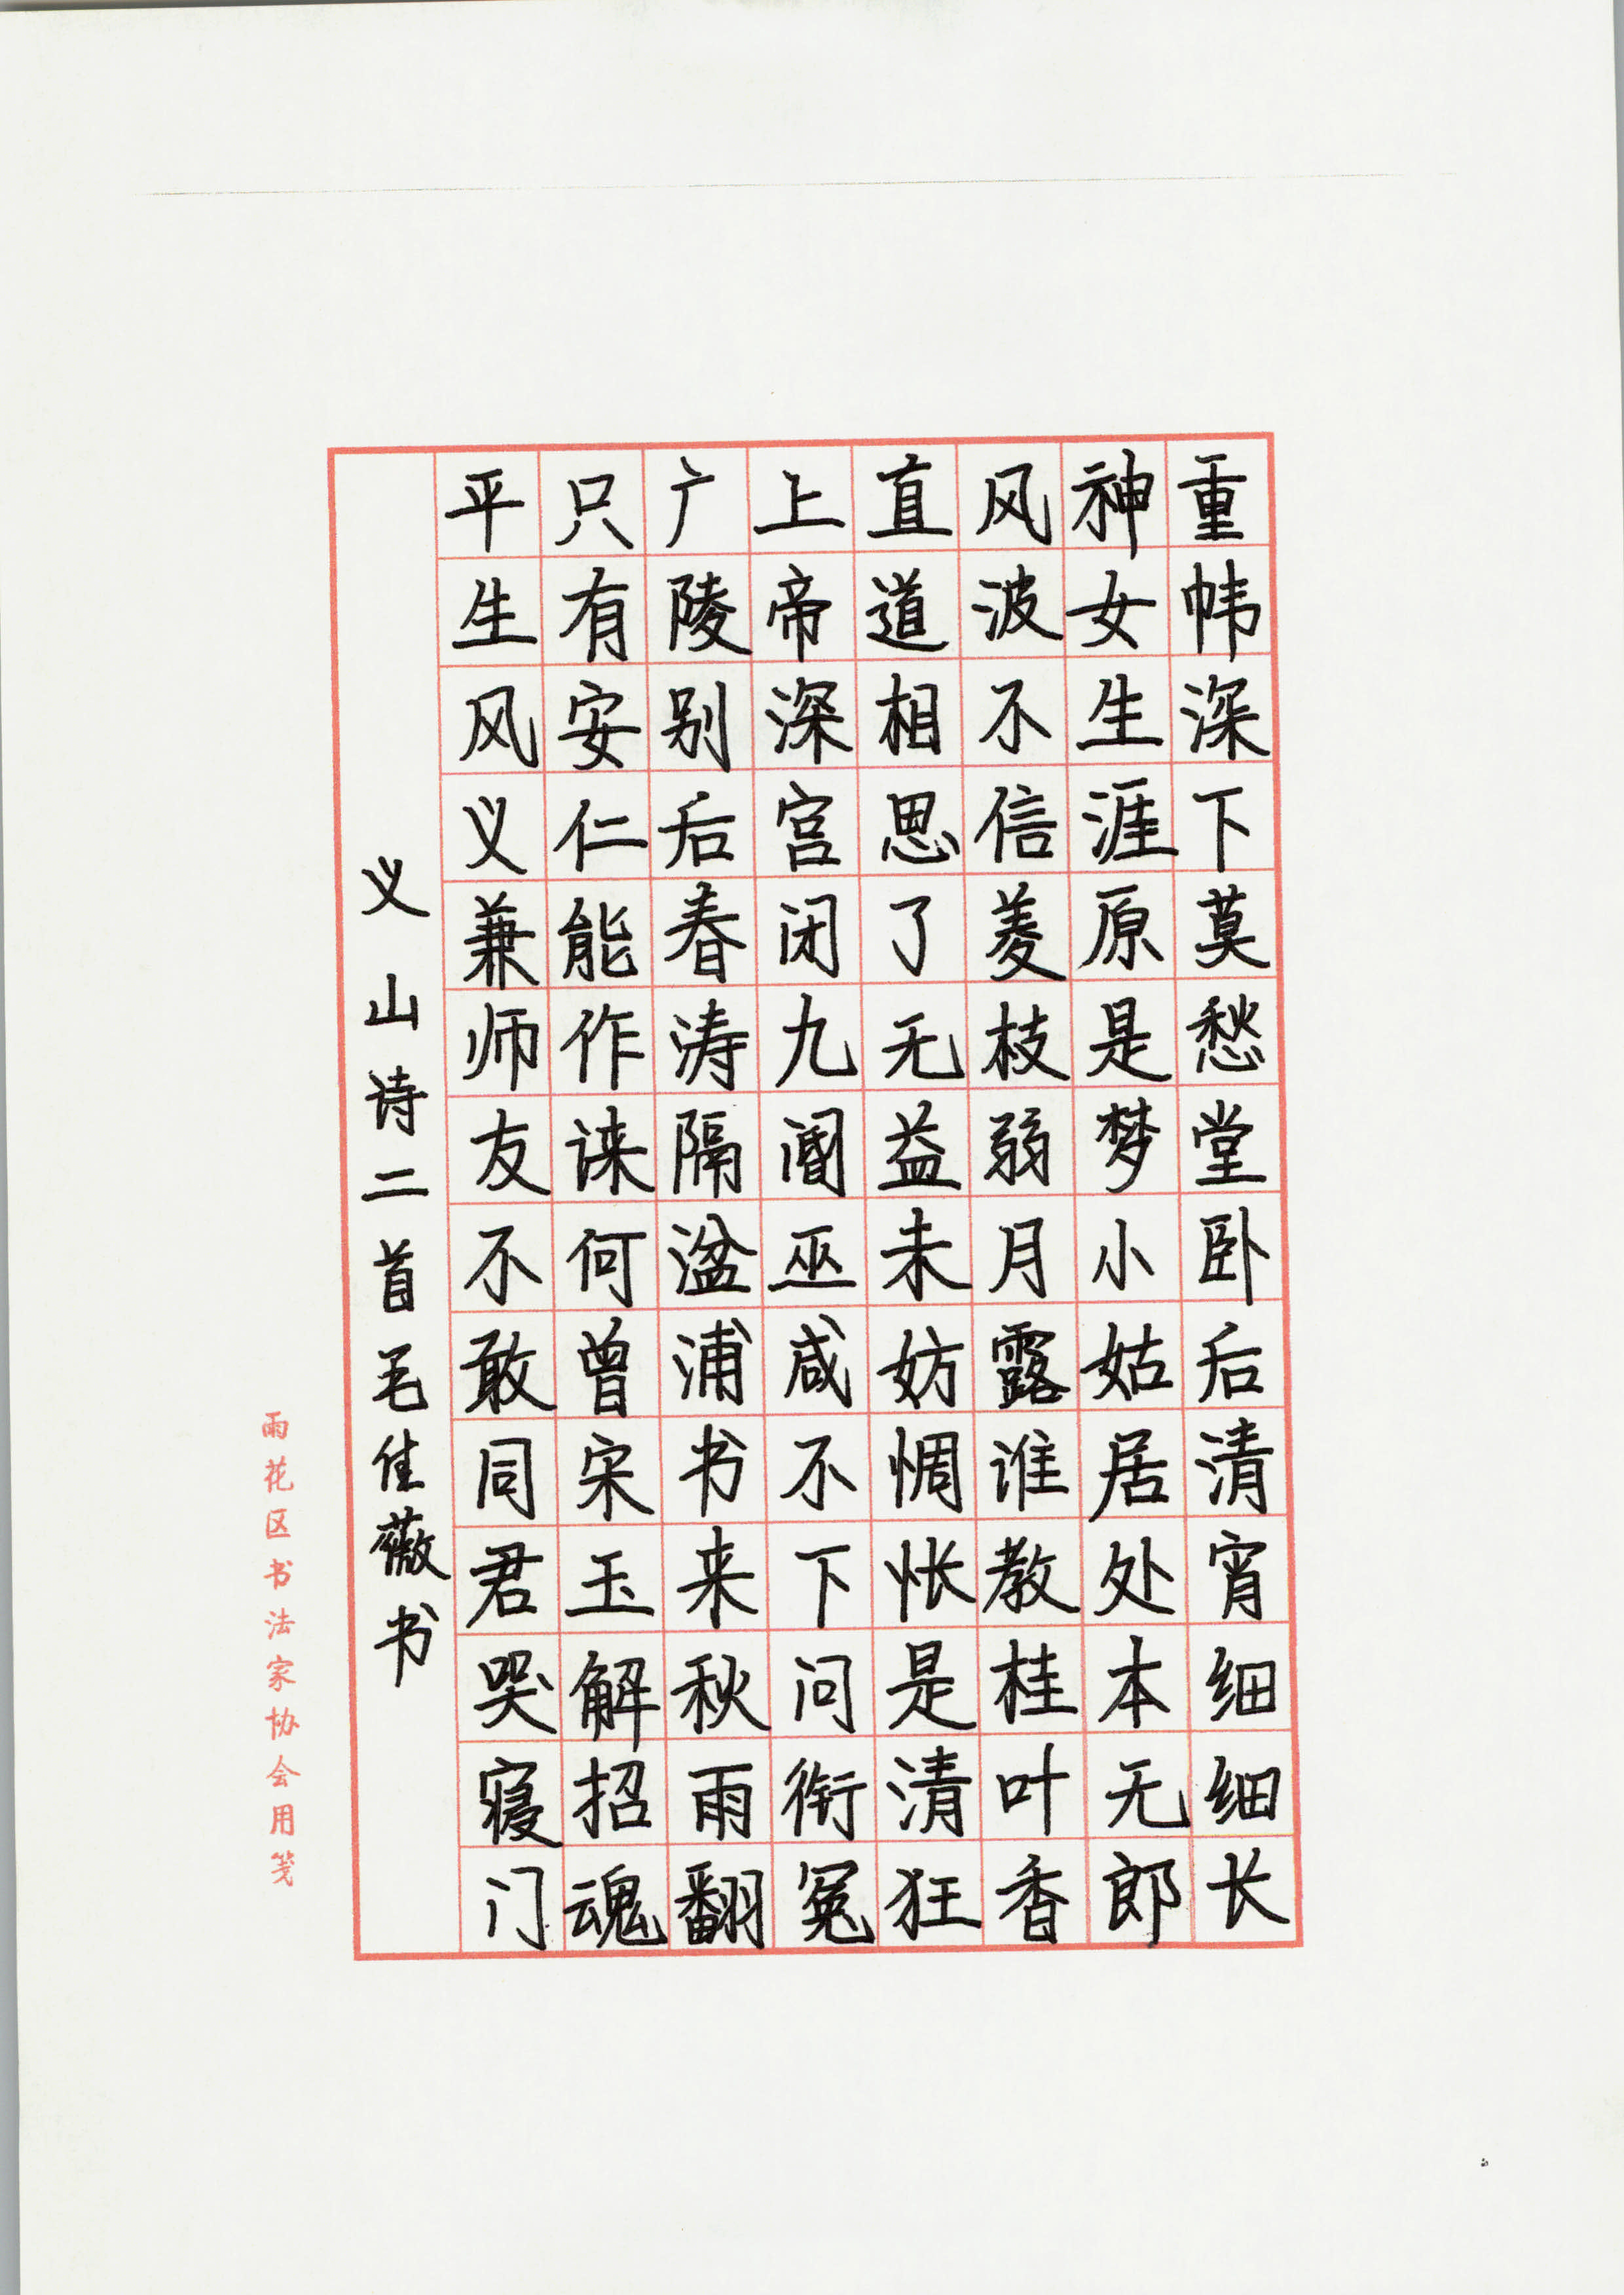 重帏深下莫愁堂卧后清宵细细长
神女生涯原是梦小姑居处本无郎
风波不信菱枝弱月露谁教桂叶香
直道相思了无益未妨惆怅是清狂
上帝深宫闭九阍巫咸不下问衔冤
广陵别后春涛隔湓浦书来秋雨翻
只有安仁能作诔何曾宋玉解招魂
平生风义兼师友不敢同君哭寝门
义山诗二首毛佳薇书
雨花区书法家协会用笺